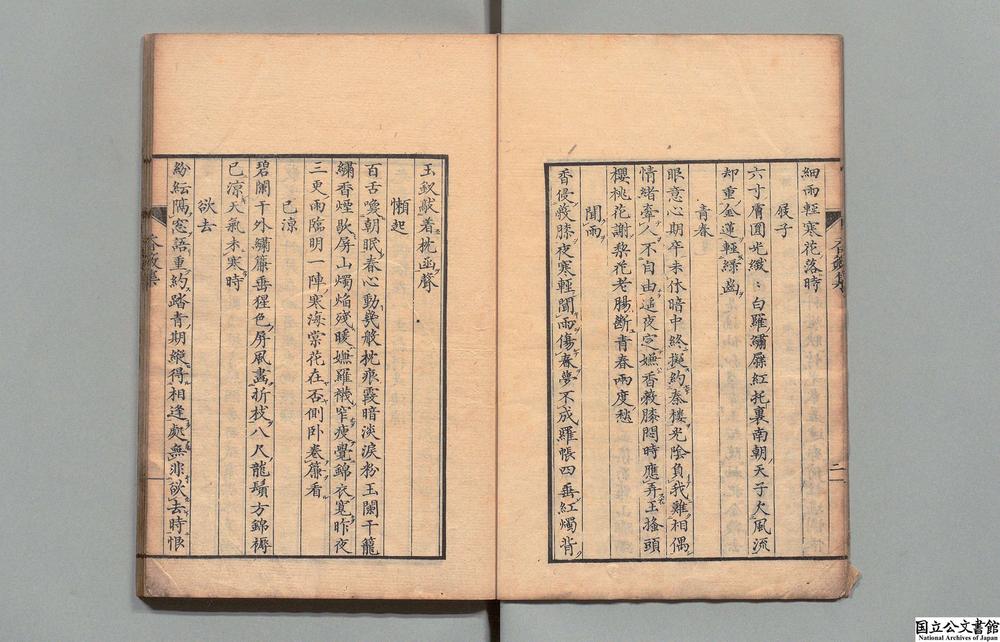 細雨輕寒花落時
屐子
六寸膚圓光纖〻白羅繡屧紅托裏南朝天子欠風流
却重金蓮輕綠齒
青春
眼意心期卒未休暗中終擬約秦樓光陰負我難相偶
情緒牽人不自由遥夜定嫌香蔽膝悶時應弄玉搔頭
櫻桃花謝梨花老腸斷青春兩度愁
聞雨
香侵蔽膝夜寒輕聞雨傷春夢不成羅帳四垂紅燭背
二
玉釵敲着枕函聲
懶起
百舌喚朝眠春心動幾般枕痕霞暗淡淚粉玉闌干籠
繡香煙歇屏山燭焰殘暖嫌羅襪窄瘦覺錦衣寬昨夜
三更雨臨明一陣寒海棠花在否側卧卷簾看
已涼
碧闌干外繡簾垂猩色屏風畫折枝八尺龍鬚方錦褥
已涼天氣未寒時
欲去
紛紜隔窓語重約踏青期縱得相逢處無非欲去時恨
香奩集
国立公文書館
National Archives of Japan